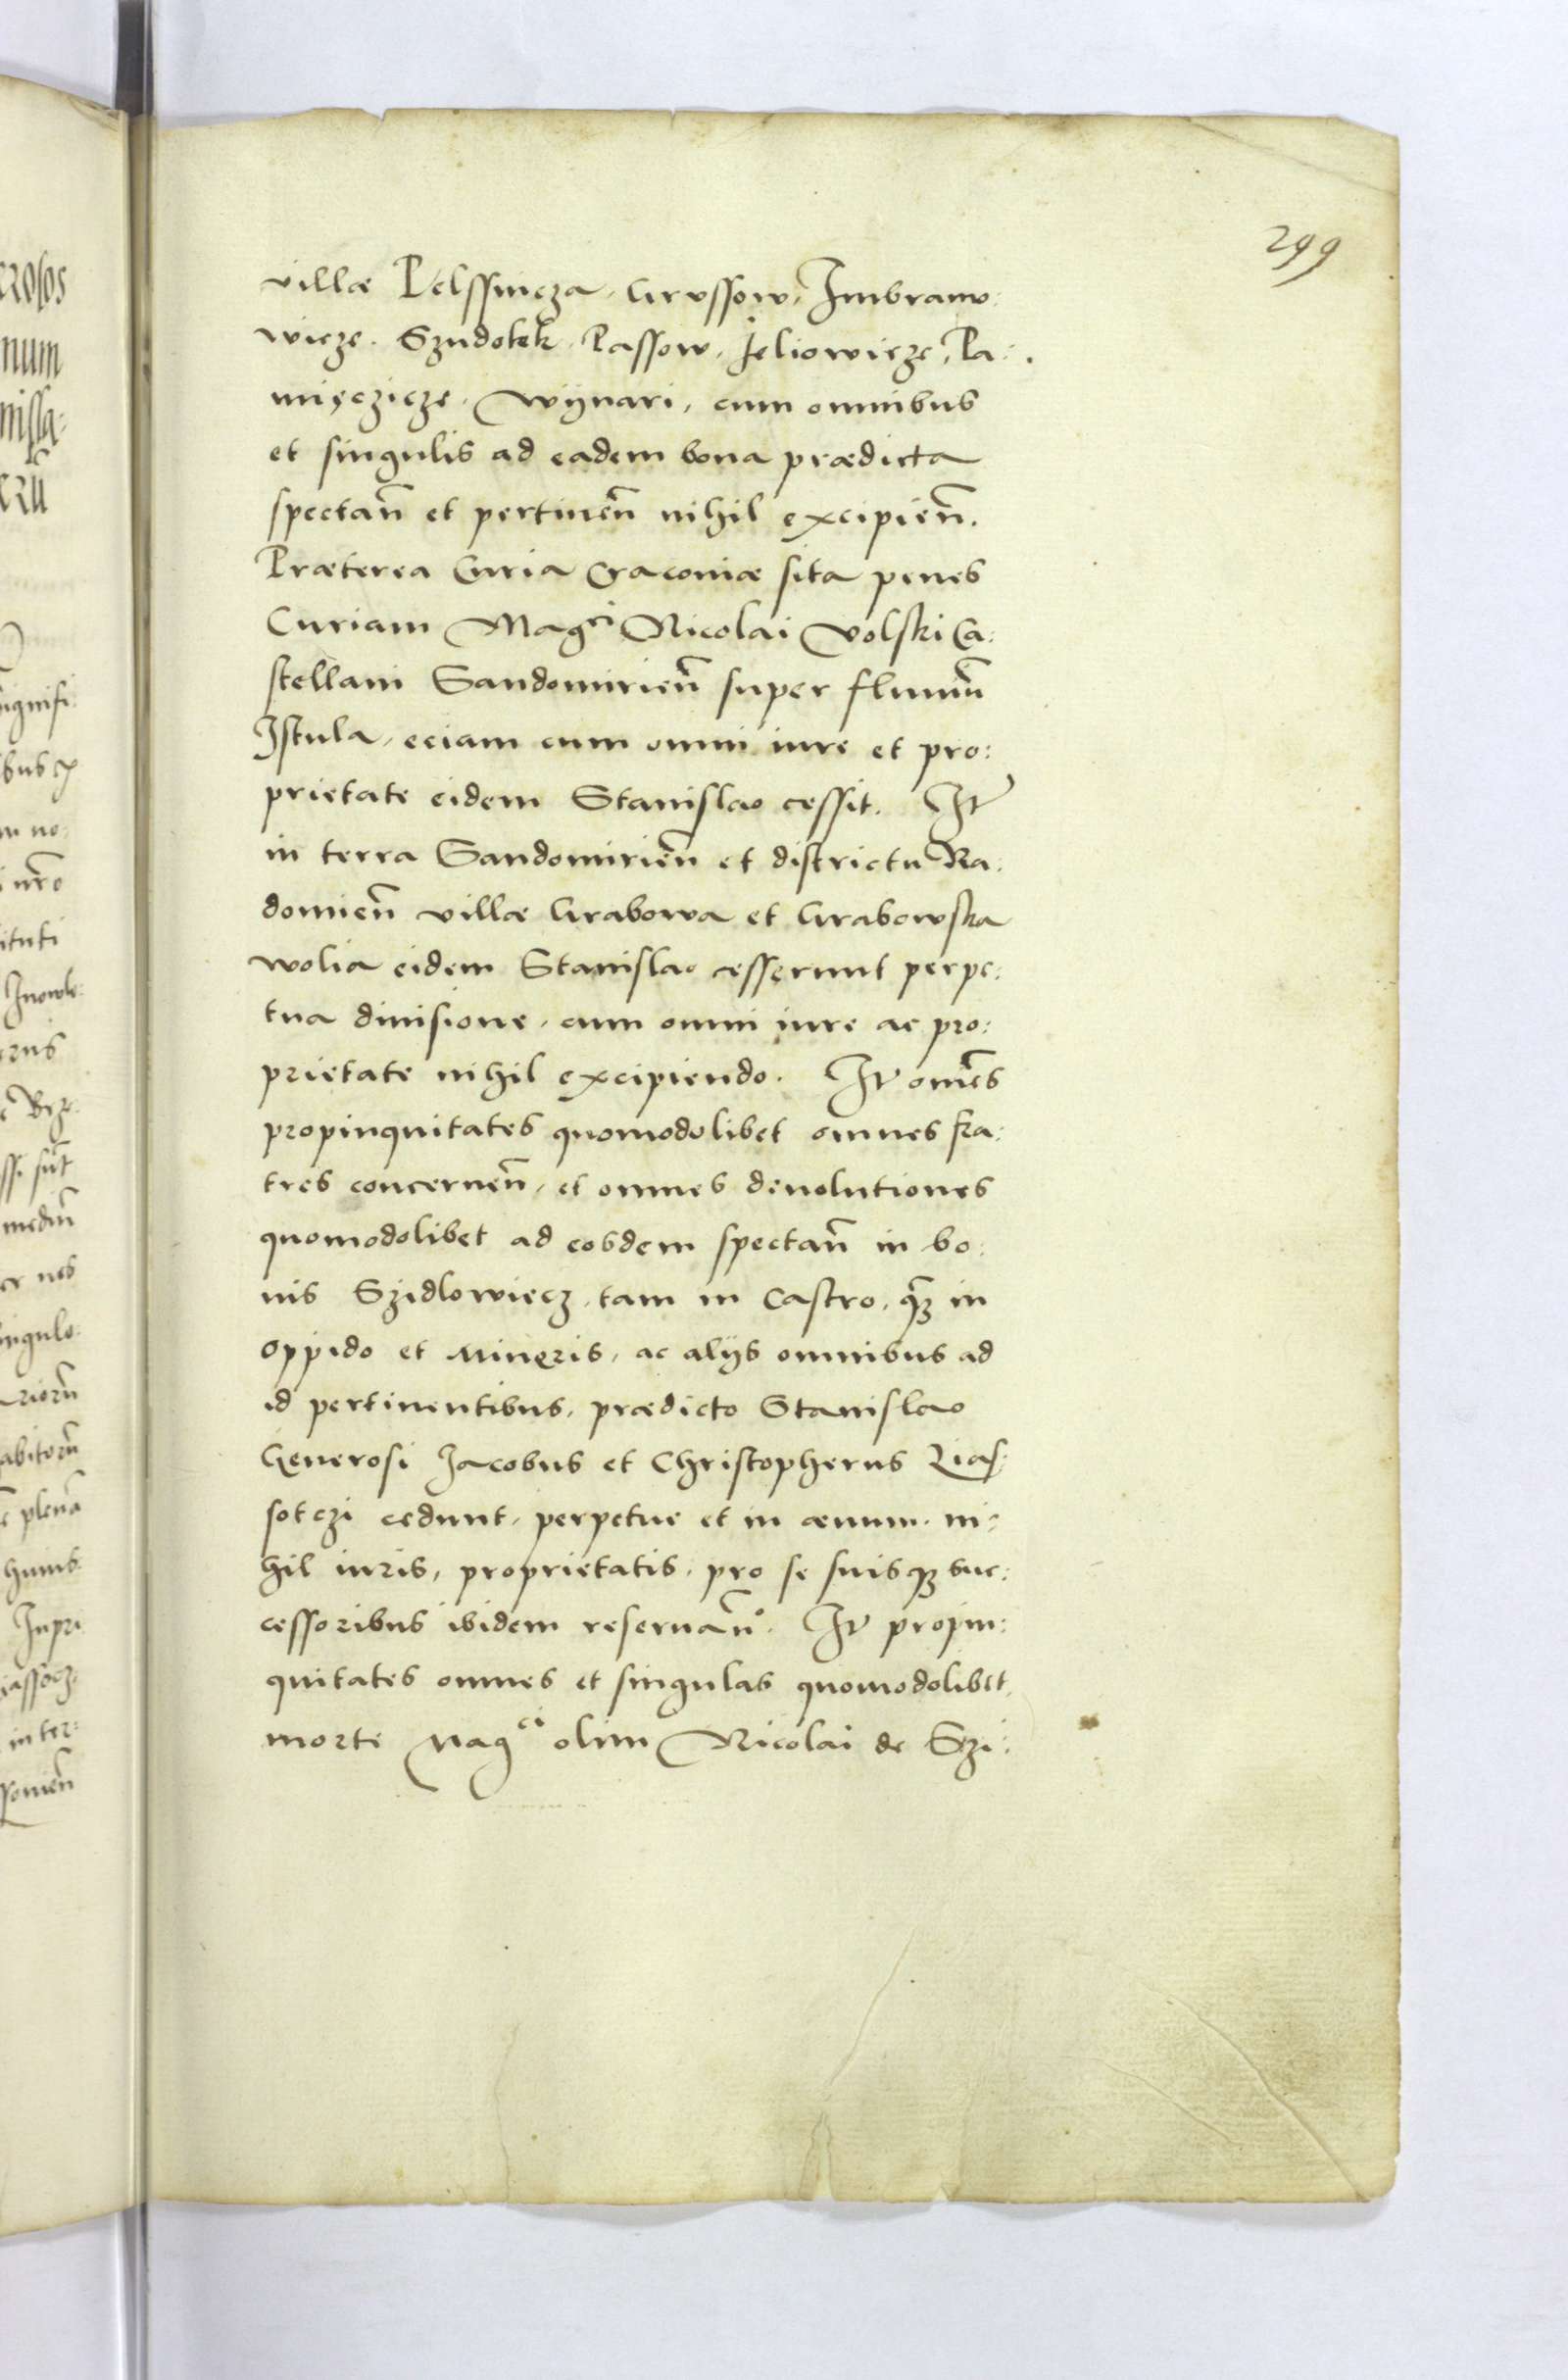 299
villæ Pelssnicza, Grussow, Imbramo:
wicze. Szudolek. Passow, Jeliowicze, Pa:
mięczicze. Wÿnari, cum omnibus
et singulis ad eadem bona prædicta
spectan̄ et pertinen̄ nihil excipien̄.
Præterea Curia Cracoviæ sita penes
Curiam Mag^ci Nicolai Volski Ca:
stellani Sandomirien̄ super flumen̄
Istula, eciam cum omni iure et pro:
prietate eidem Stanislao cessit. It̄
in terra Sandomirien̄ et districtu Ra:
domien̄ villæ Grabowa et Grabowska
wolia eidem Stanislao cesserunt perpe:
tua diuisione, cum omni iure ac pro:
prietate nihil excipiendo. It̄ omēs
propinquitates quomodolibet omnes fra:
tres concernen̄, et omnes deuolutiones
quomodolibet ad eosdem spectan̄ in bo:
nis Szidlowiecz, tam in Castro, q̄ȝ in
oppido et Mineris, ac alijs omnibus ad
id pertinentibus, prædicto Stanislao
Generosi Jacobus et Christopherus Lias:
sotczi cedunt, perpetue et in æuum. ni:
hil iuris, proprietatis, pro se suisqȝ suc:
cessoribus ibidem reseruan̄°. It̄ propin:
quitates omnes et singulas quomodolibet
morte Mag^ci olim Nicolai de Szi: